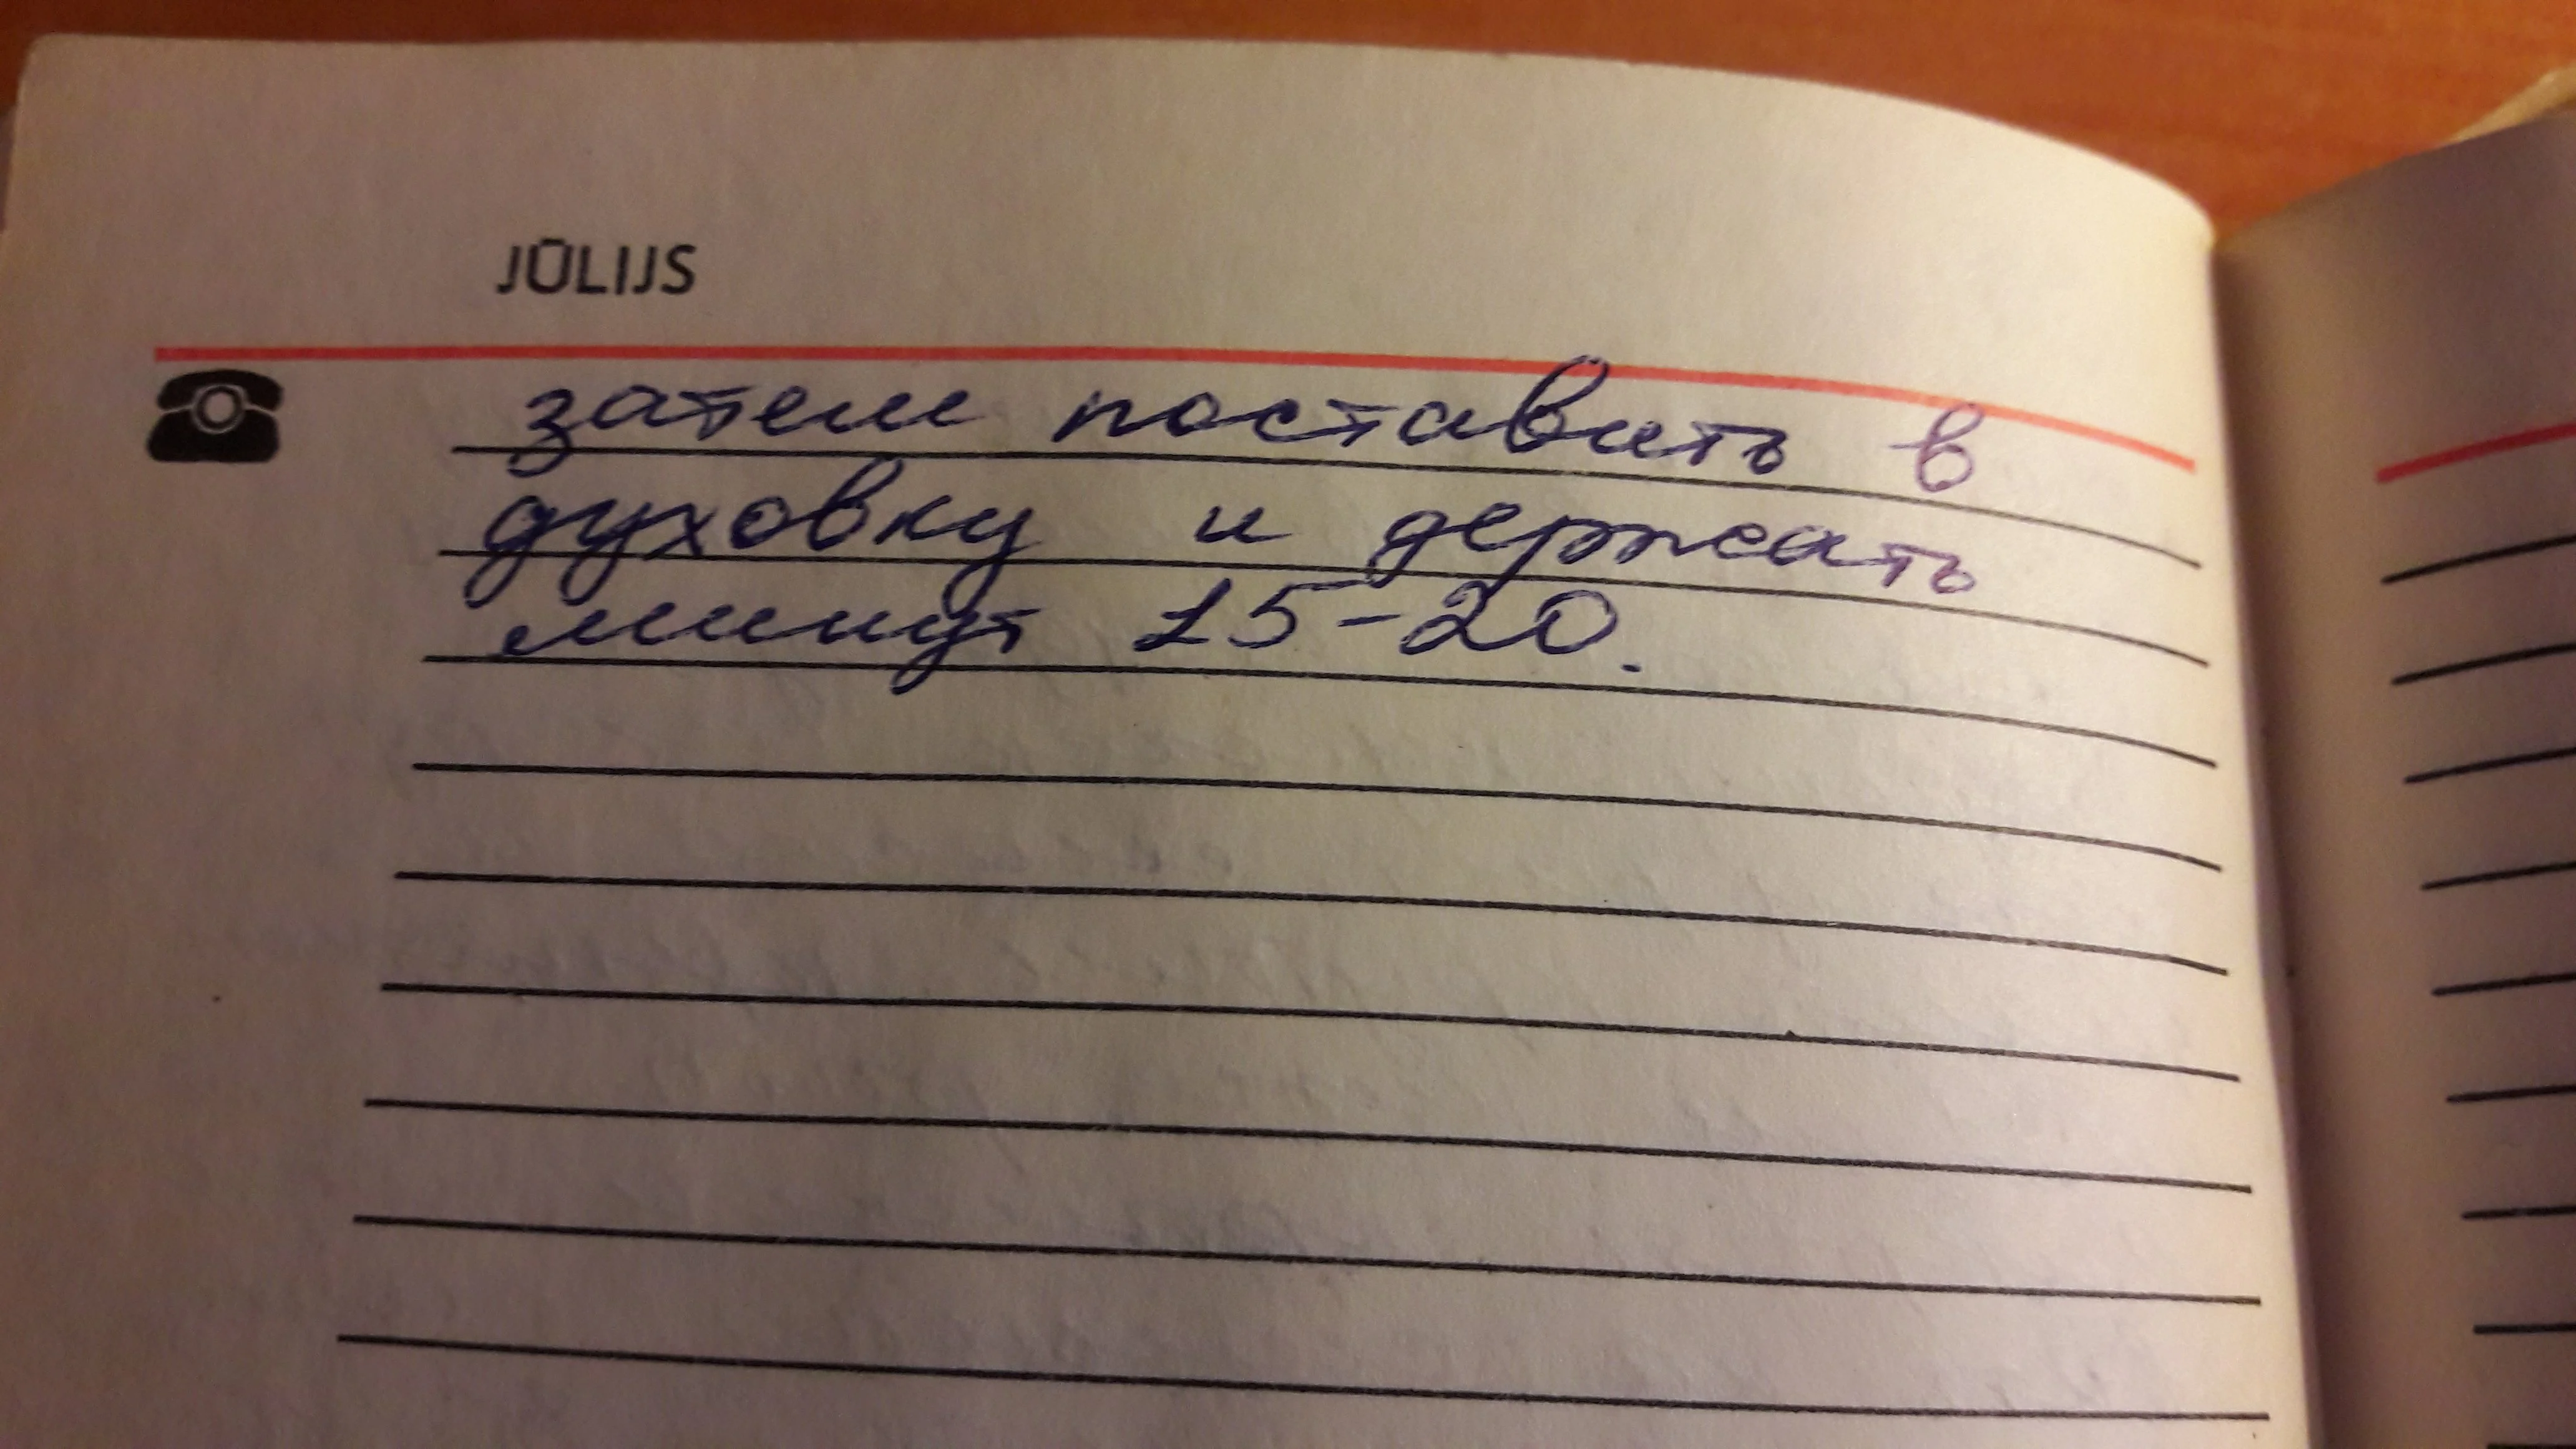 JŪLIJS
затем поставить в
духовку и держать
минут 15-20.